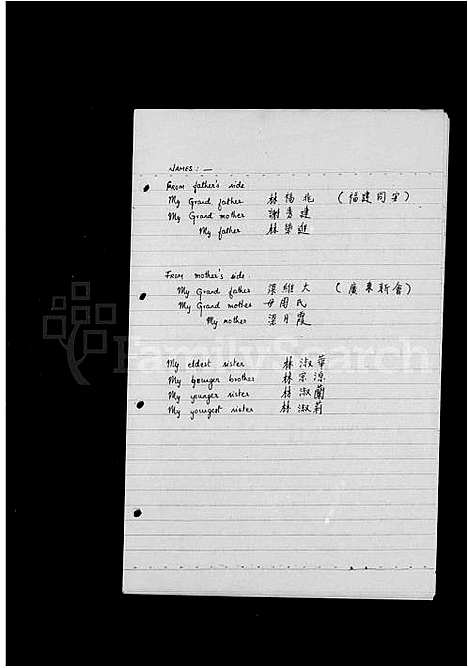 NAMES: —
FROM father's side
My Grand father 林楊兆 (福建同安)
My Grand mother 謝秀建
My father 林榮進
FROM mother's side
My Grand father 梁維大 (廣東新會)
My Grand mother 周氏
My mother 梁月霞
My eldest sister 林淑華
My younger brother 林宗涼
My younger sister 林淑蘭
My youngest sister 林淑莉
FamilySearch